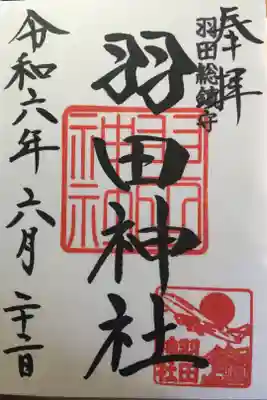 奉拝
羽田総鎮守
羽田神社
令和六年六月二十二日
羽田神社